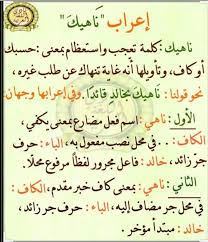 إعراب "نَاهيكَ"
ناهيك: كلمة تعجب واستعظام بمعنى: حسبك
أو كاف، وتأويلها أنه غاية تنهاك عن طلب غيره،
نحو قولنا: ناهيك بخالد قائدا. وفي إعرابها وجهان:
الأول: ناهي: اسم فعل مضارع بمعنى يكفي،
الكاف: في محل نصب مفعول به، الباء: حرف
جر زائد، خالد: فاعل مجرور لفظاً مرفوع محلّا.
الثاني: ناهي: بمعنى كاف خبر مقدم، الكاف:
في محل جر مضاف إليه، الباء: حرف جر زائد،
خالد: مبتدأ مؤخر.